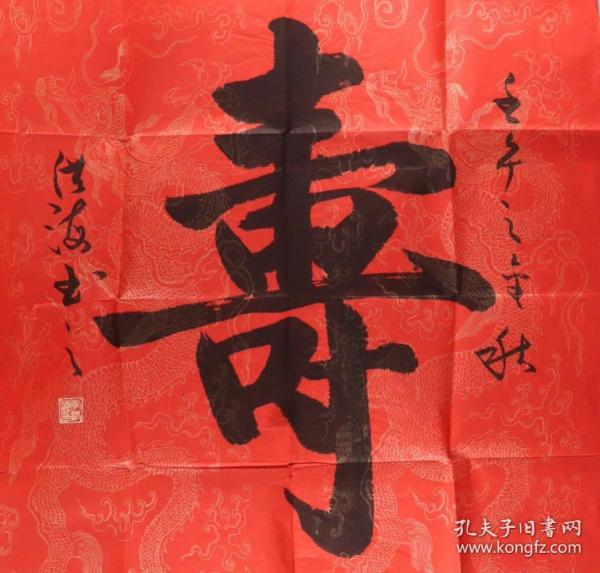 壬午之金秋
壽
洪海书之
孔夫子旧書网
www.kongfz.com